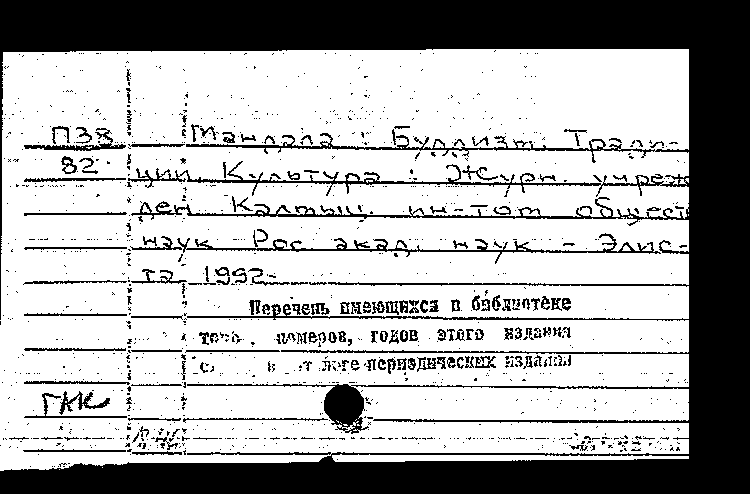 П38 Мандала : Буддизм. Тради-
82 ции. Культура : Журн. учреж
ден Калмыц. ин-том обществ
наук Рос. акад. наук - Элис-
та 1992-
Перечень имеющихся в библиотеке
номеров, годов этого издания
периодических издания
ГАК